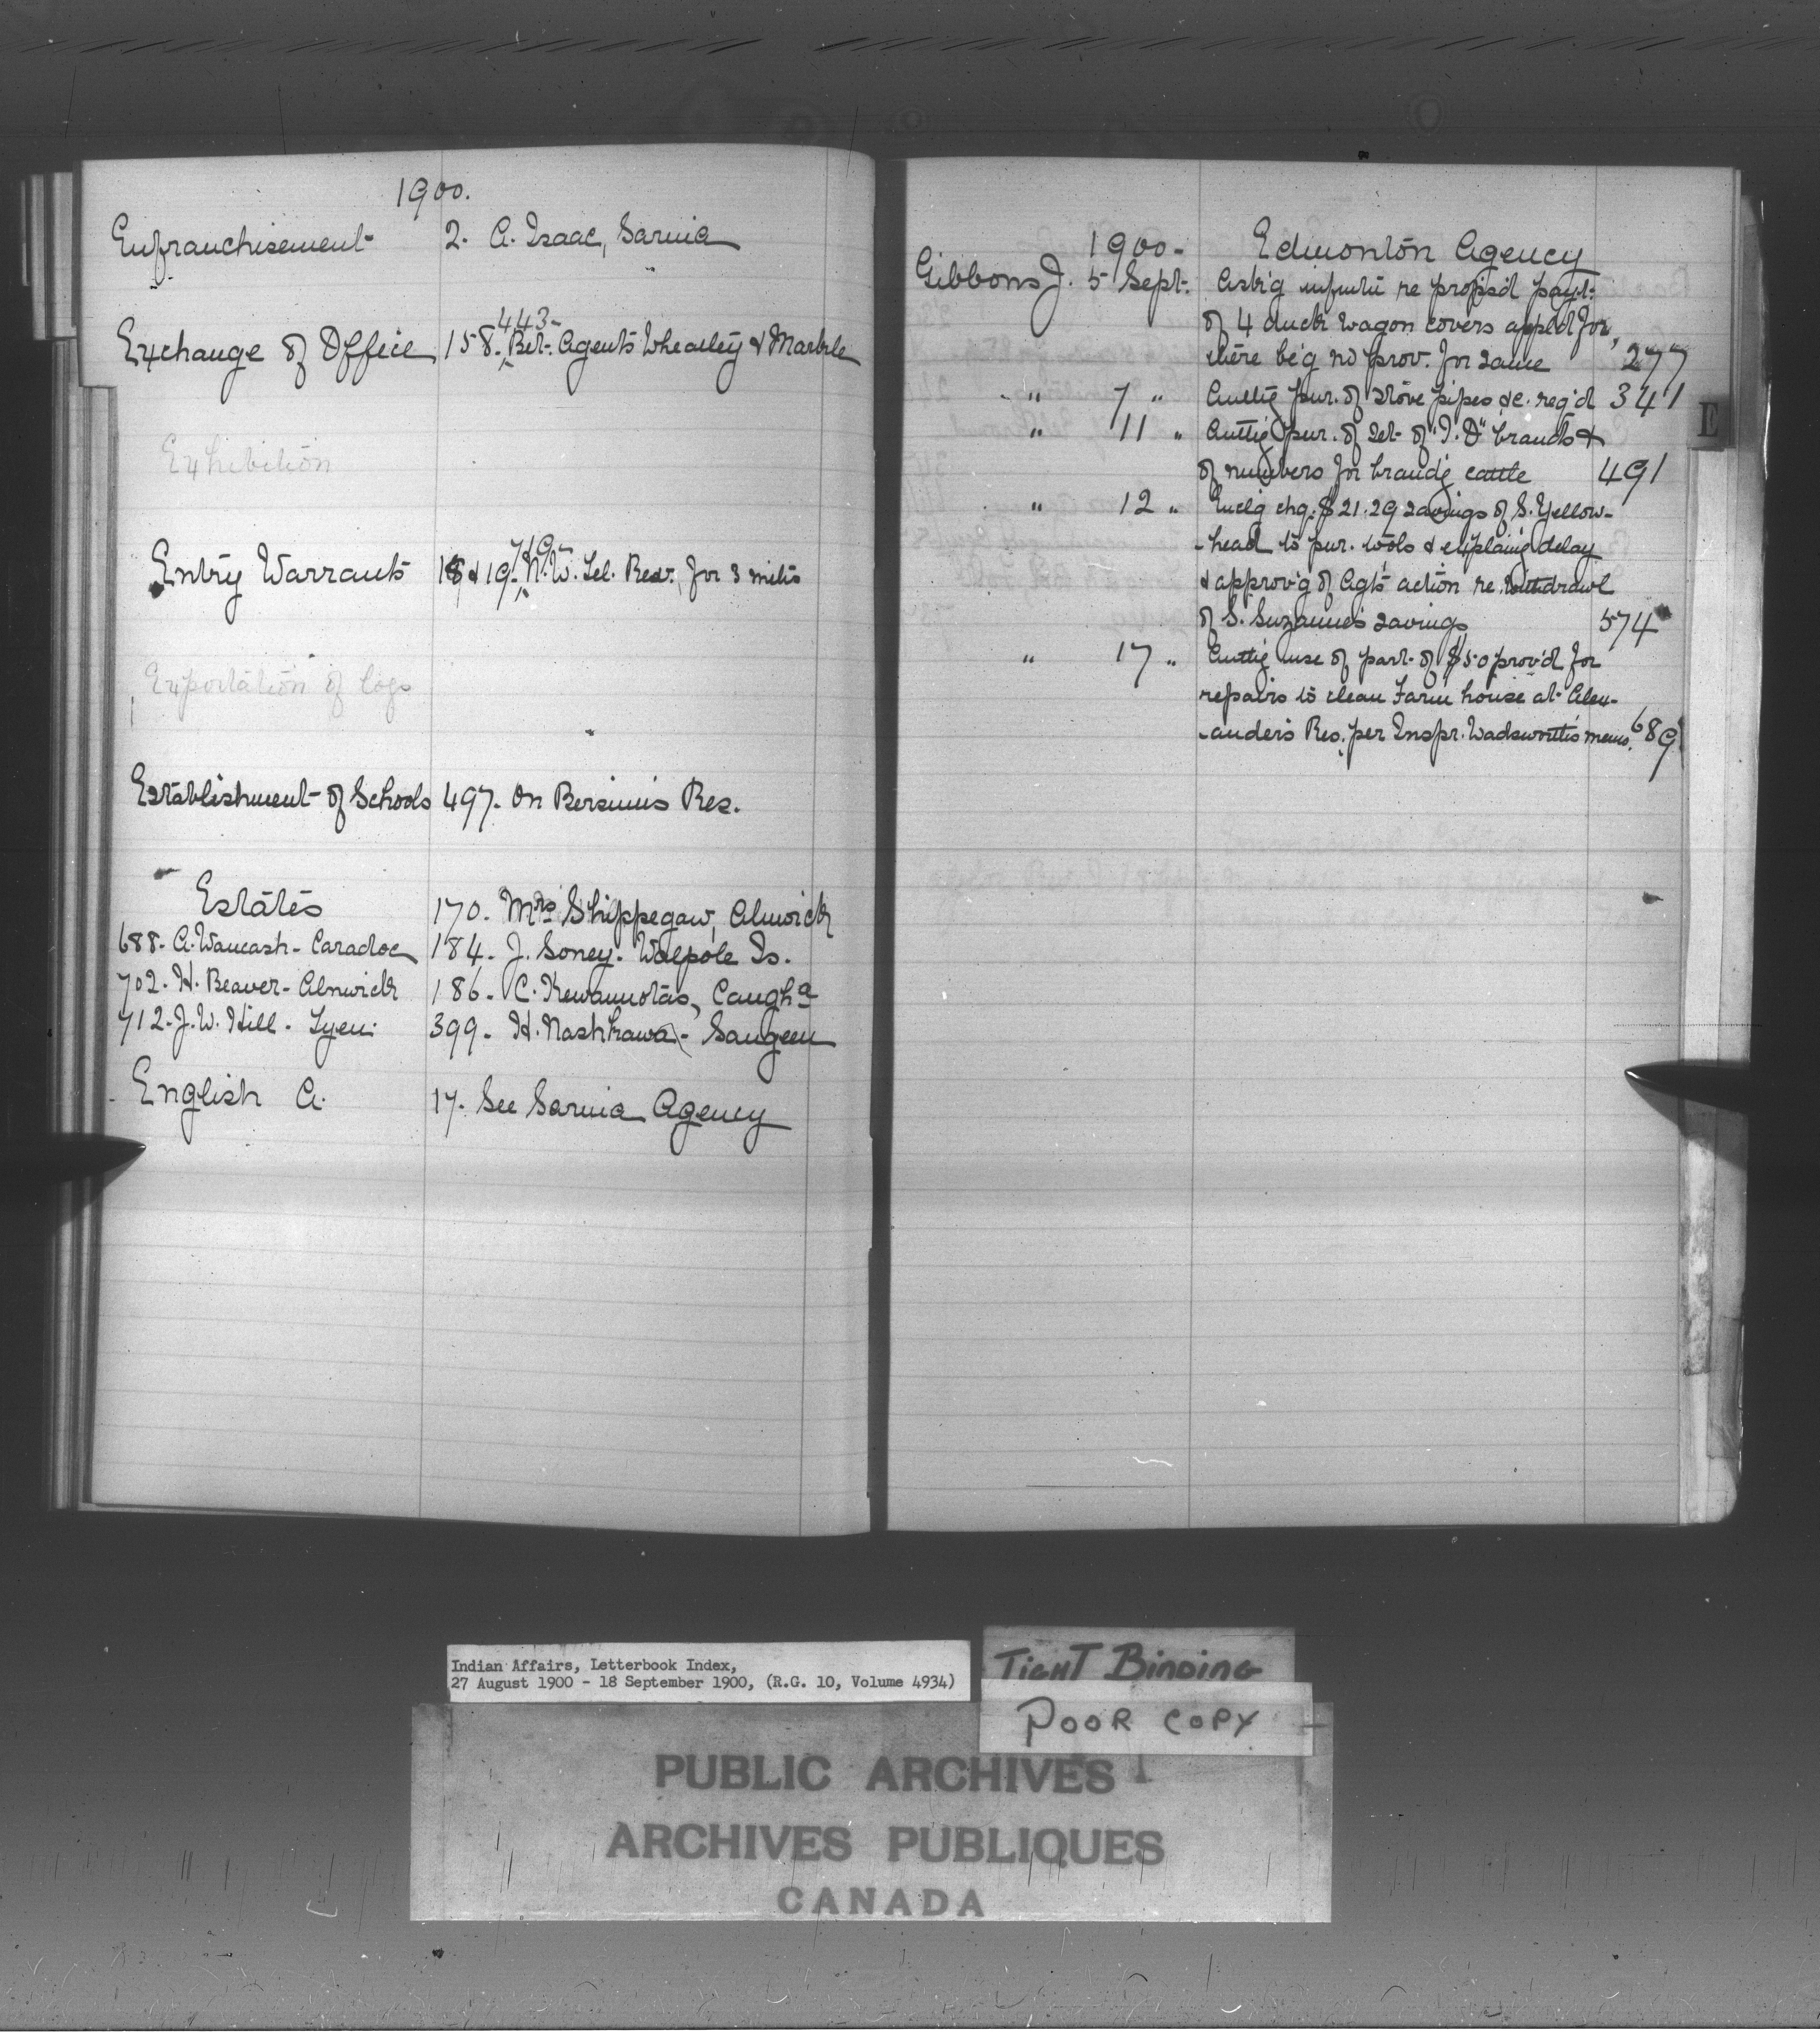 1900.
Enfranchisement 2. A. Isaac, Sarnia
443-
Exchange of Office 158. Bet. Agents Wheatley & Marble
Exhibition
719-
Entry Warrants 18 & 19. N.W. Tel. for 3 mths
Exportation of logs
Establishment of Schools 497. On Bersimis Res.
Estates 170. Mrs Shippegaw, Alnwick
688. A. Waucash - Caradoc 184. J. Soney. Walpole Is.
702. H. Beaver - Alnwick 186. C. Caugha
712. J.W. Hill. Tyen. 399. H. Nashkawa - Saugeen
English A. 17. See Sarnia Agency
1900- Edmonton Agency
Gibbons J. 5 Sept. Ask'g re propos'd payt.
of 4 duck wagon covers appl'd for,
there be'g no prov. for same 277
" 7 " Authg pur. of stove pipes &c. req'd 341
" 11 " Authg pur. of set of "I.D" brands &
of numbers for brandg cattle 491
" 12 " Enclg chq. $21.29 savings of S. Yellow-
-head to pur. tools & explaing delay
& approv'g of Agt's action re. withdrawl
of S. Suzanne's savings 574
" 17 " Authg use of part of $50 prov'd for
repairs to clean Farm house at Alex-
-ander's Res. per Inspr. Wadsworth's memo. 689
E
Indian Affairs, Letterbook Index,
27 August 1900 - 18 September 1900, (R.G. 10, Volume 4934)
TIGHT BINDING
POOR COPY
PUBLIC ARCHIVES
ARCHIVES PUBLIQUES
CANADA